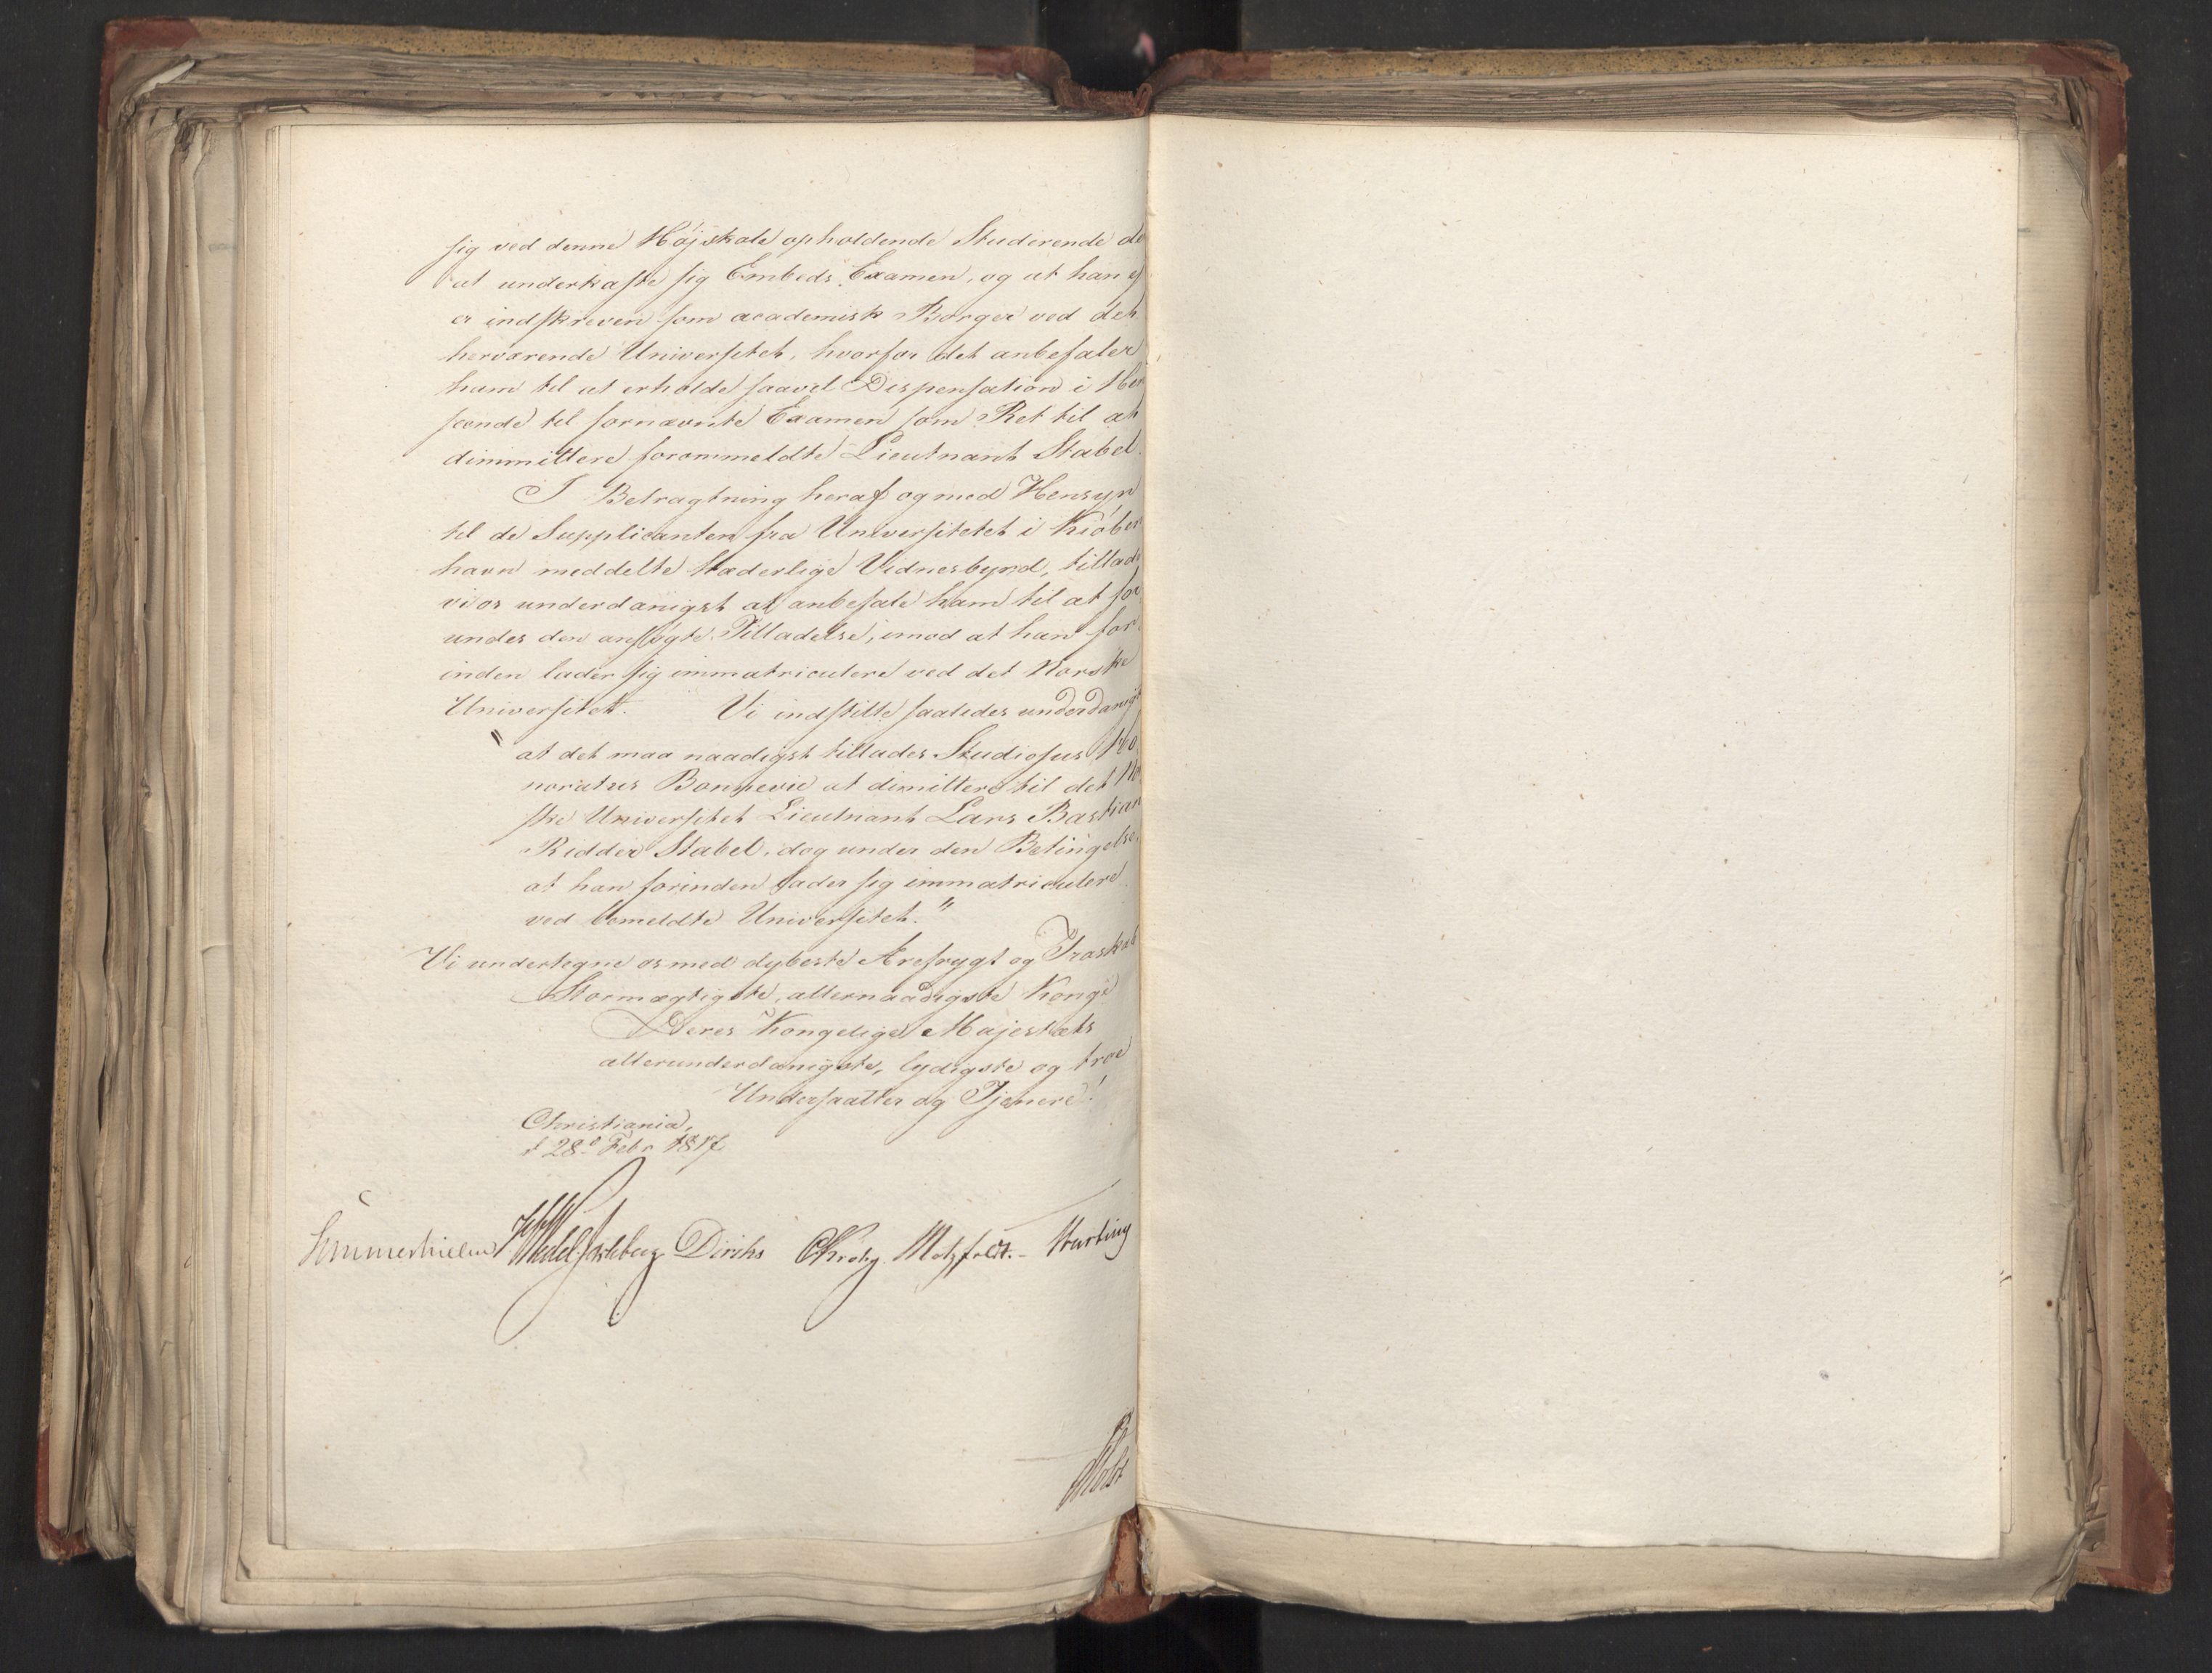 sig ved denne Højskole opholdende Studerende de
at underkaste sig Embeds Examen, og at han ej
er indskreven som academisk Borger ved det
herværende Universitet, hvorfor det anbefaler
ham til at erholde saavel Dispensation i Hen
seende til fornævnte Examen som Ret til at
dimmittere forommeldte Lieutnant Stabel.
I Betragtning heraf og med Hensyn
til de Supplicanten fra Universitetet i Kiøben
havn meddelte hæderlige Vidnesbyrd, tillade
vi os underdanigst at anbefale ham til at for
undes den ansøgte Tilladelse, imod at han for
inden lader sig immatriculere ved det Norske
Universitet. Vi indstille saaledes underdanigst
"at det maa naadigst tillades Studiosus Ho
noratus Bonnevie at dimittere til det No
ske Universitet Lieutnant Lars Bastian
Ridder Stabel, dog under den Betingelse,
at han forinden lader sig immatriculere
ved bemeldte Universitet."
Vi undertegne os med dybeste Ærefrygt og Troskab
Stormægtigste, allernaadigste Konge
Deres Kongelige Majestæts
allerunderdanigste, lydigste og troe
Undersaatter og Tjenere!
Christiania,
d 28d Febr 1817
Sommerhielm Wedel Jarlsberg Diriks CKrohg. Motzfeldt. - Harbing
Holst